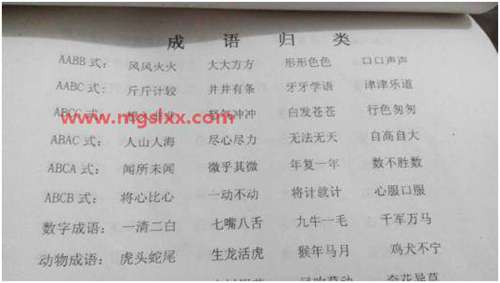 成语归类
AABB式：风风火火 大大方方 形形色色 口口声声
AABC式：斤斤计较 井井有条 牙牙学语 津津乐道
ABCC式： 气冲冲 白发苍苍 行色匆匆
www.mgslxx.com
ABAC式：人山人海 尽心尽力 无法无天 自高自大
ABCA式：闻所未闻 微乎其微 年复一年 数不胜数
ABCB式：将心比心 一动不动 将计就计 心服口服
数字成语：一清二白 七嘴八舌 九牛一毛 千军万马
动物成语：虎头蛇尾 生龙活虎 猴年马月 鸡犬不宁
奇花异草